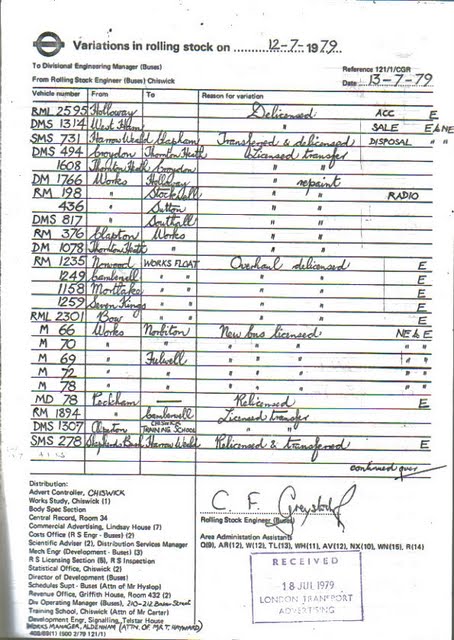 Variations in rolling stock on 12-7-1979.
To Divisional Engineering Manager (Buses)
Reference 121/1/CGR
From Rolling Stock Engineer (Buses) Chiswick
Date 13-7-79
Vehicle number From To Reason for variation
RML 2595 Holloway Delicensed ACC E
DMS 1314 West Ham " SALE E & NE
SMS 731 Harrow Weald Clapham Transferred & delicensed DISPOSAL " "
DMS 494 Croydon Thornton Heath Licensed transfer
1608 Thornton Heath Croydon " "
DM 1766 Works Holloway " repaint
RM 198 " Stockwell " " RADIO
436 " Sutton " "
DMS 817 " Southall " "
RM 376 Clapton Works " "
DM 1078 Thornton Heath " " "
RM 1235 Norwood WORKS FLOAT Overhaul delicensed E
1249 Camberwell " " " " E
1158 Mortlake " " " " E
1259 Seven Kings " " " " E
RML 2301 Bow " " " " E
M 66 Works Norbiton New bus licensed NE & E
M 70 " " " " " " "
M 69 " Fulwell " " " " "
M 72 " " " " " " "
M 78 " " " " " " "
MD 78 Peckham — Relicensed E
RM 1894 " Camberwell Licensed transfer
DMS 1307 Clapton CHISWICK TRAINING SCHOOL " "
SMS 278 Shepherds Bush Harrow Weald Relicensed & transferred E
continued over
Distribution:
Advert Controller, CHISWICK
Works Study, Chiswick (1)
Body Spec Section
Central Record, Room 34
Commercial Advertising, Lindsay House (7)
Costs Office (R S Engr - Buses) (2)
Scientific Adviser (2), Distribution Services Manager
Mech Engr (Development - Buses) (3)
R S Licensing Section (5), R S Inspection
Statistical Office, Chiswick (2)
Director of Development (Buses)
Schedules Supt - Buses (Attn of Mr Hyslop)
Revenue Office, Griffith House, Room 432 (2)
Div Operating Manager (Buses), 210-212 Baker Street
Training School, Chiswick (Attn of Mr Carter)
Development Engr, Signalling, Telstar House
WORKS MANAGER, ALDENHAM (ATTN. OF MR T. HAYWARD)
(500 2/79 121/1)
C. F. Greystock
Rolling Stock Engineer (Buses)
Area Administration Assistants
Q(9), AR(12), W(12), TL(13), WH(11), AV(12), NX(10), WN(15), R(14)
RECEIVED
18 JUL 1979
LONDON TRANSPORT
ADVERTISING